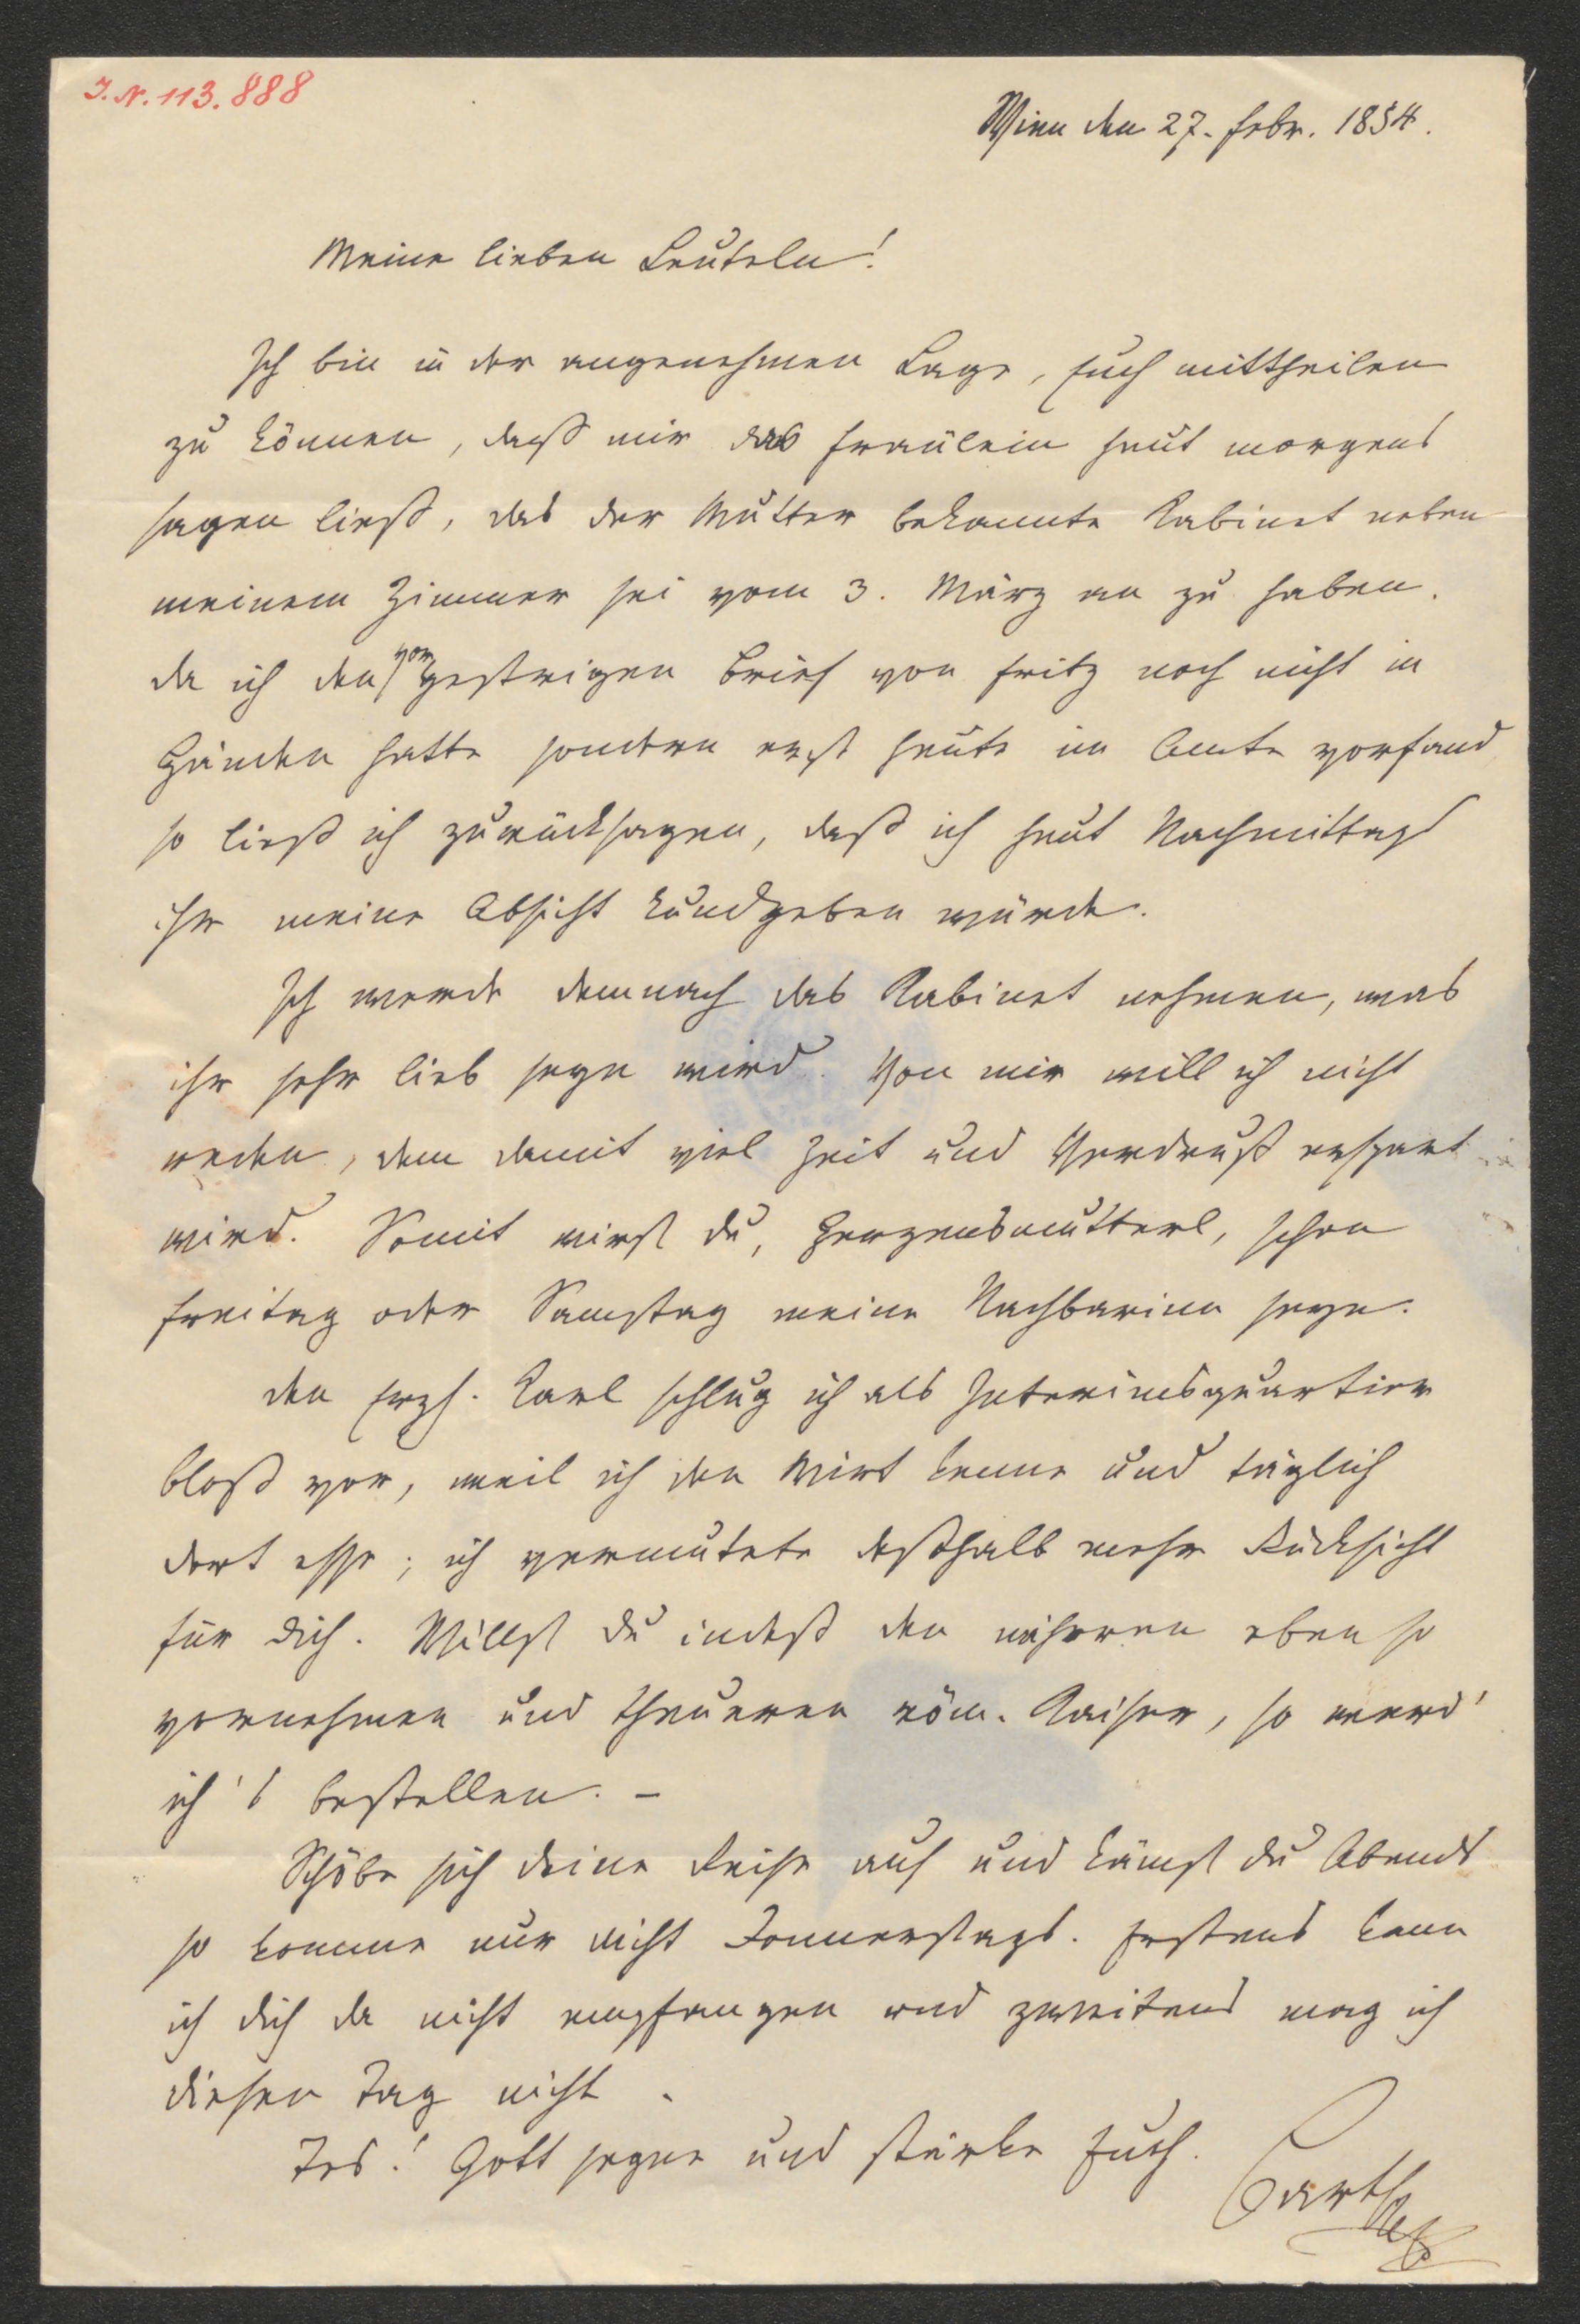 I. N. 113.888
Wien den 27. Febr. 1854.
Meine lieben Leuteln!
Ich bin in der angenehmen Lage, Euch mittheilen
zu können, daß mir das Fräulein heut morgens
sagen ließ, das der Mutter bekannte Kabinet neben
meinem Zimmer sei vom 3. März an zu haben.
Da ich den vorgestrigen Brief von Fritz noch nicht in
Händen hatte sondern erst heute im Amte vorfand
so ließ ich zurücksagen, daß ich heut Nachmittags
ihr meine Absicht kundgeben würde.
Ich werde demnach das Kabinet nehmen, was
ihr sehr lieb seyn wird. Von mir will ich nicht
reden, dem damit viel Zeit und Verdruß erspart
wird. Somit wirst du, Herzensmutterl, schon
Freitag oder Samstag meine Nachbarinn seyn.
Den Erzh. Karl schlug ich als Interimsquartier
bloß vor, weil ich den Wirt kenne und täglich
dort esse; ich vermutete deßhalb mehr Rücksicht
für dich. Willst du indeß den näheren eben so
vornehmen und theueren röm. Kaiser, so werd'
ich's bestellen. –
Schöbe sich deine Reise auf und kämst du Abends
so komme nur nicht Donnerstags. Erstens kann
ich dich da nicht empfangen und zweitens mag ich
diesen Tag nicht.
Gott segne und stärke Euch.